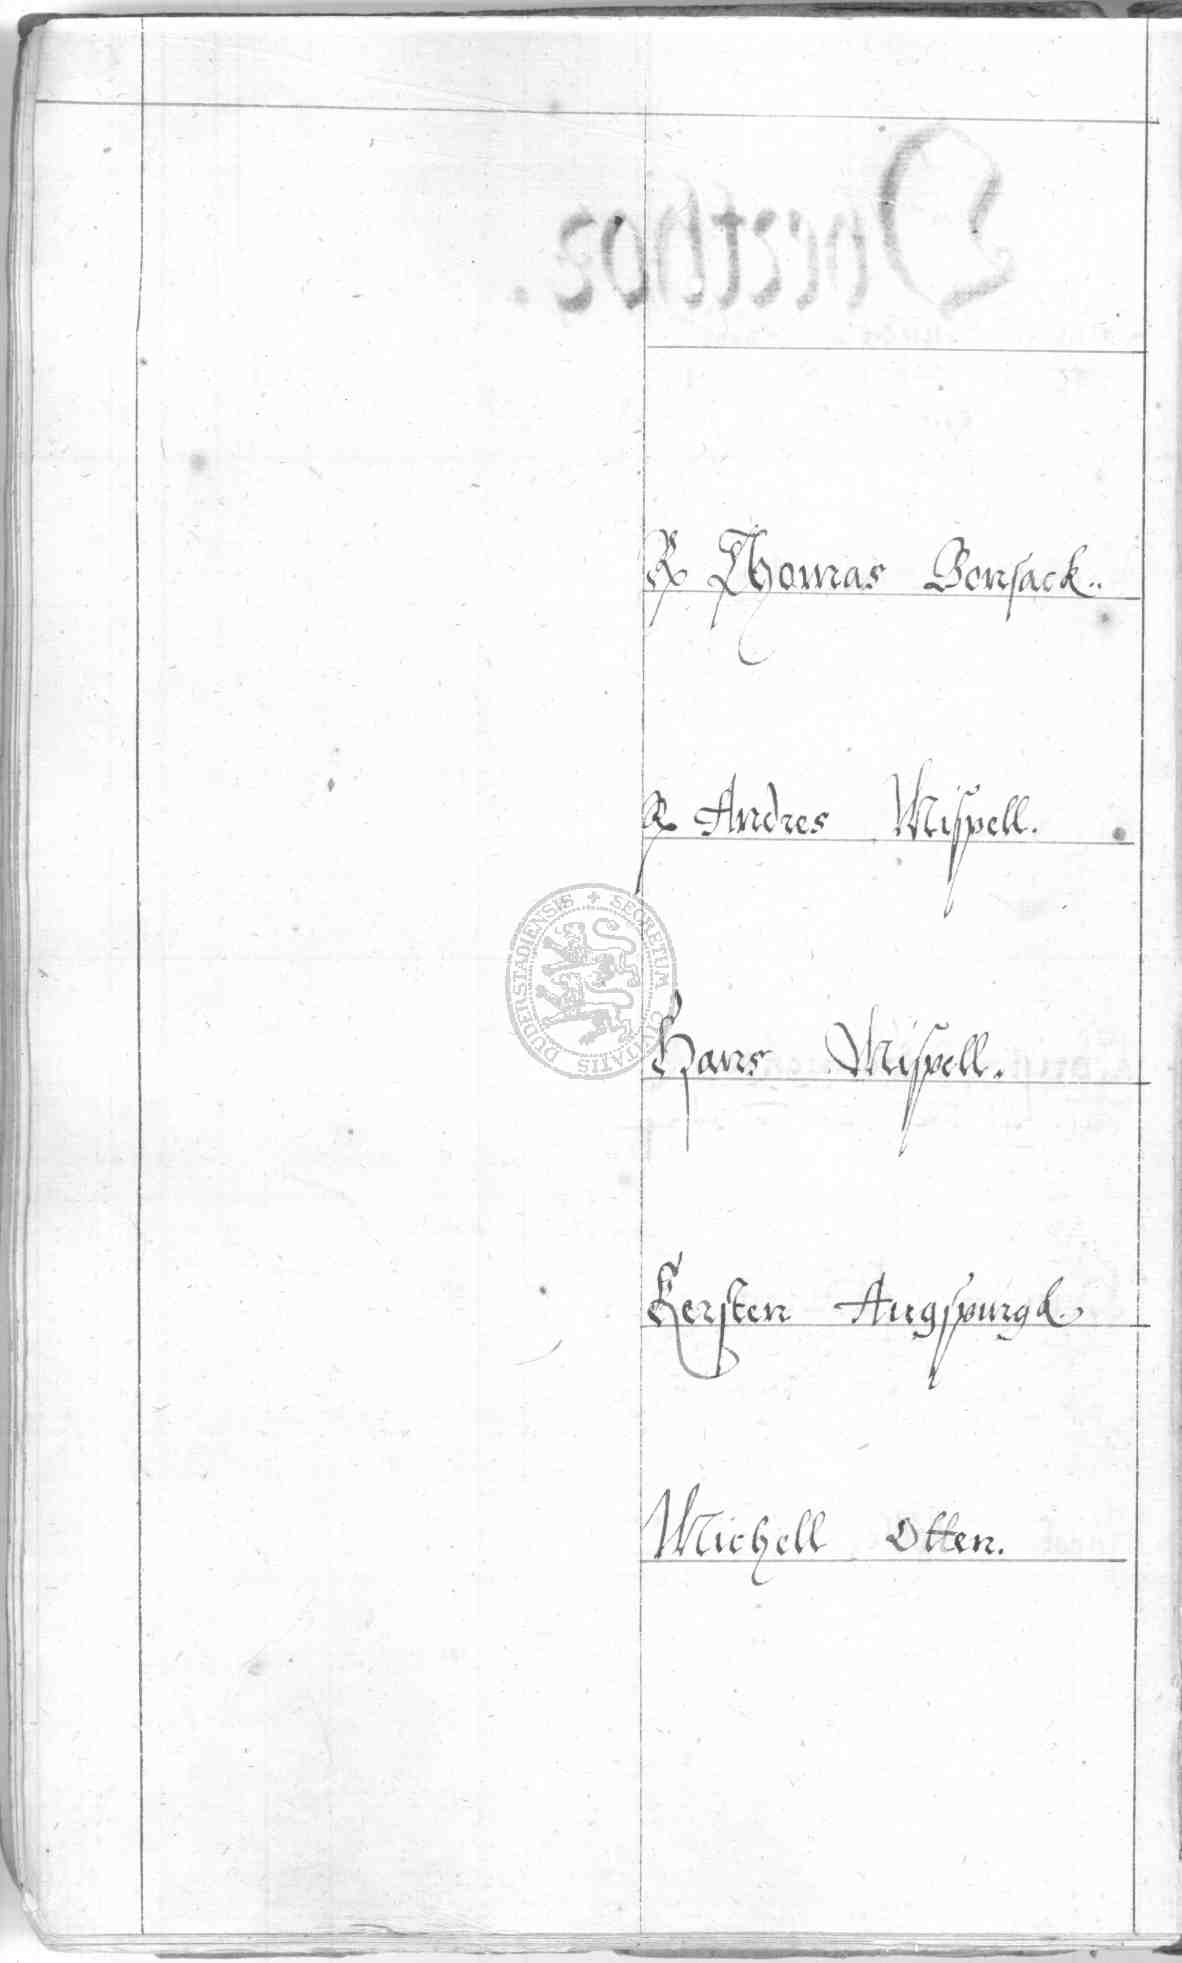 R Thomas Bonsack..
R Andres Mispell.
SECRETUM CIVITATIS DUDERSTADIENSIS
Hans Mispell.
Kersten Augspurgk.
Michell Otten.